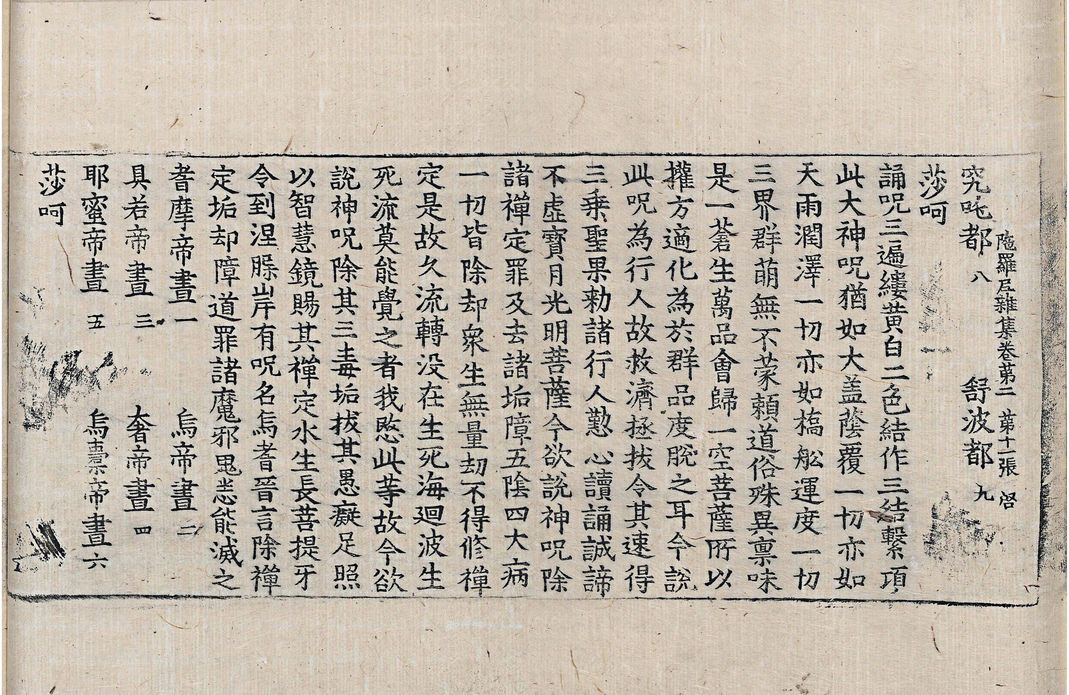 究吒都 八 舒波都 九
陁羅尼雜集卷第二 第十二張 啓
莎呵
誦呪三遍縷黃白二色結作三結繫項
此大神呪猶如大盖蔭覆一切亦如
天雨潤澤一切亦如橋舩運度一切
三界群萌無不蒙頼道俗殊異禀味
是一蒼生萬品會歸一空菩薩所以
權方適化為於群品度脫之耳今說
此呪為行人故救濟拯拔令其速得
三乗聖果勑諸行人懃心讀誦誠諦
不虛寶月光明菩薩今欲說神呪除
諸禪定罪及去諸垢障五陰四大病
一切皆除却衆生無量劫不得修禪
定是故久流轉没在生死海迴波生
死流莫能覺之者我愍此等故今欲
說神呪除其三毒垢拔其愚癡足照
以智慧鏡賜其禪定水生長菩提牙
令到涅槃岸有呪名烏耆晉言除禪
定垢却障道罪諸魔邪鬼悉能滅之
耆摩帝晝 一 烏帝晝 二
具若帝晝 三 奢帝晝 四
耶蜜帝晝 五 烏橐帝晝 六
莎呵